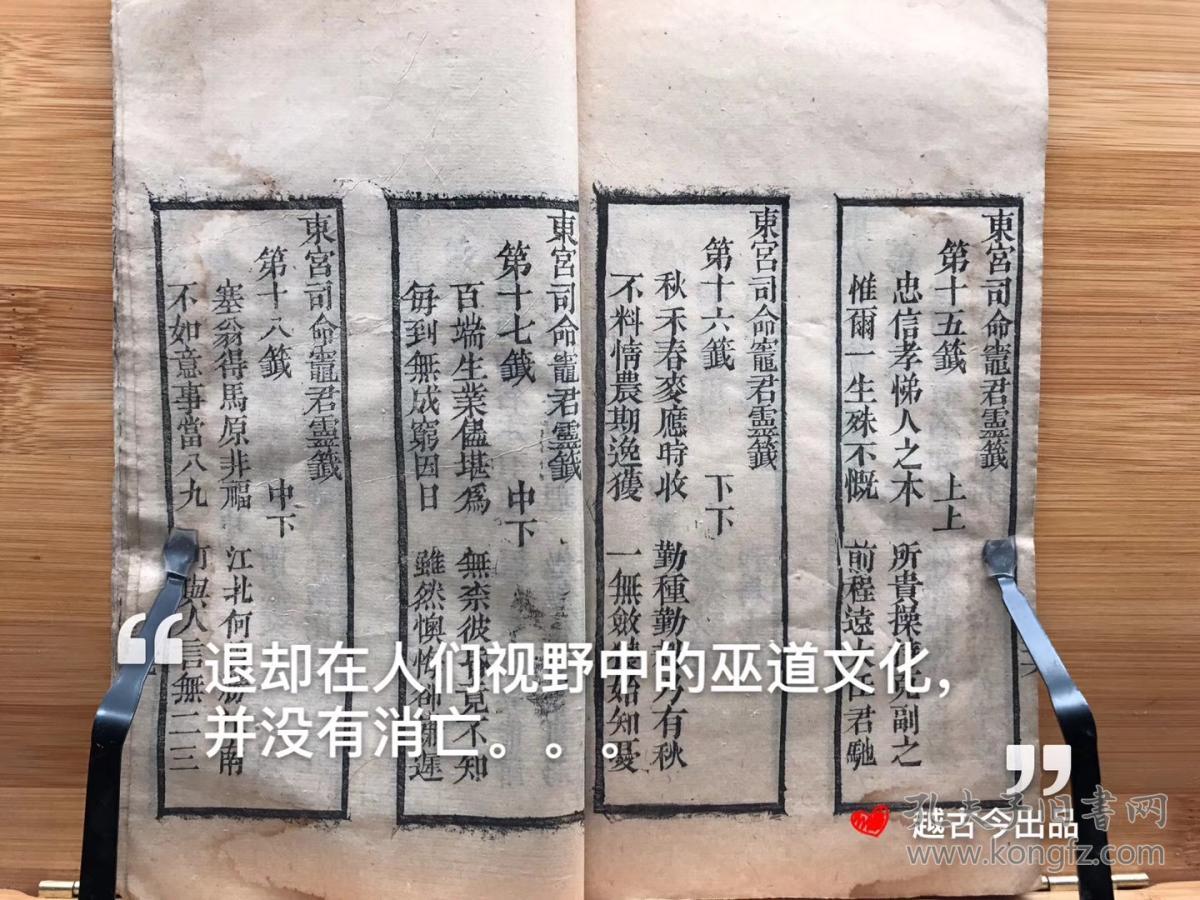 東宮司命竈君靈籤
第十五籤 上上
忠信孝悌人之本 所貴操 副之
惟爾一生殊不慨 前程遠 君馳
東宮司命竈君靈籤
第十六籤 下下
秋禾春麥應時收 勤種勤 乃有秋
不料情農期逸獲 一無斂 始知憂
東宮司命竈君靈籤
第十七籤 中下
百端生業儘堪為 無柰彼 竟不知
每到無成窮困日 雖然懊悔卻 遲
東宮司命竈君靈籤
第十八籤 中下
塞翁得馬原非福 江北何 南
不如意事當八九 可與人言無二三
“退却在人们视野中的巫道文化，
并没有消亡。。。”
越古今出品
孔夫子旧书网
www.kongfz.com